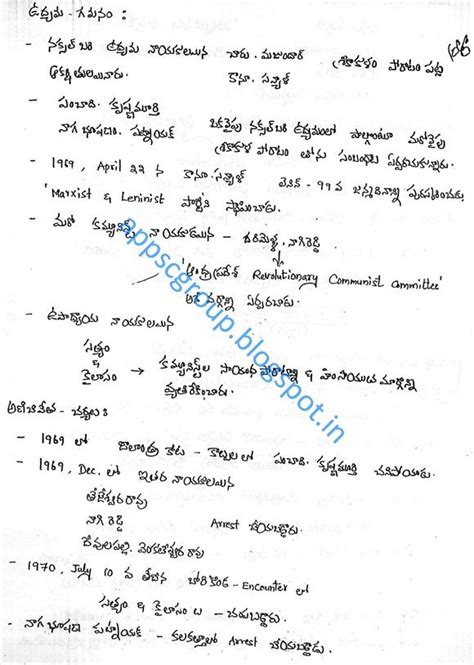 ఉద్యమ - గమనం :
- నక్సల్ బరి ఉద్యమ నాయకులయిన చారు. మజుందార్ శ్రీకాకుళం పోరాటం పట్ల
ఆకర్షితులయినారు. కానూ. సన్యాల్
- పంచాది. కృష్ణమూర్తి
నాగ భూషణం. పట్నాయక్
ఒకవైపు నక్సల్ బరి ఉద్యమంలో పాల్గొంటూ మరోవైపు
శ్రీకాకుళ పోరాటం తోను సంబంధాలు ఏర్పరుచుకున్నారు.
- 1969, April 22 న కానూ. సన్యాల్ లెనిన్ - 99 వ జన్మదినాన్ని పురస్కరించుకు
'Marxist & Leninist పార్టీ'ని స్థాపించారు.
- మరో కమ్యూనిస్టు నాయకుడయిన - తరిమెళ్ళ. నాగిరెడ్డి
'ఆంధ్రప్రదేశ్ Revolutionary Communist committee'
అనే వర్గాన్ని ఏర్పరిచారు.
- ఉపాధ్యాయ నాయకులయిన
సత్యం
&
కైలాసం → కమ్యూనిస్టుల సాయుధ పోరాటాన్ని & హింసాయుత మార్గాన్ని
వ్యతిరేకించారు.
అణచివేత - చర్యలు :
- 1969 లో కాల్పులలో పంచాది. కృష్ణమూర్తి చనిపోయాడు.
- 1969, Dec. లో ఇతర నాయకులయిన
తేజేశ్వరరావు
నాగి రెడ్డి Arrest చేయబడ్డారు.
దేవులపల్లి. వెంకటేశ్వర రావు
- 1970, July 10 వ తేదీన బోరికొండ - Encounter లో
సత్యం & కైలాసం లు - చంపబడ్డారు.
- నాగ భూషణ పట్నాయక్ - కలకత్తాలో Arrest చేయబడ్డాడు.
appscgroup.blogspot.in